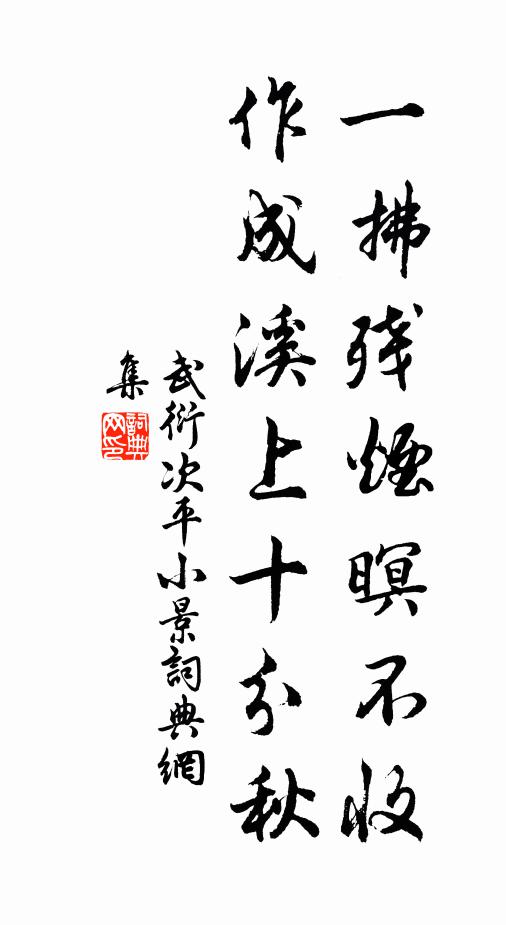 一拂殘煙暝不收
作成溪上十分秋
武衍次平小景詞典網
集
詞典
网印